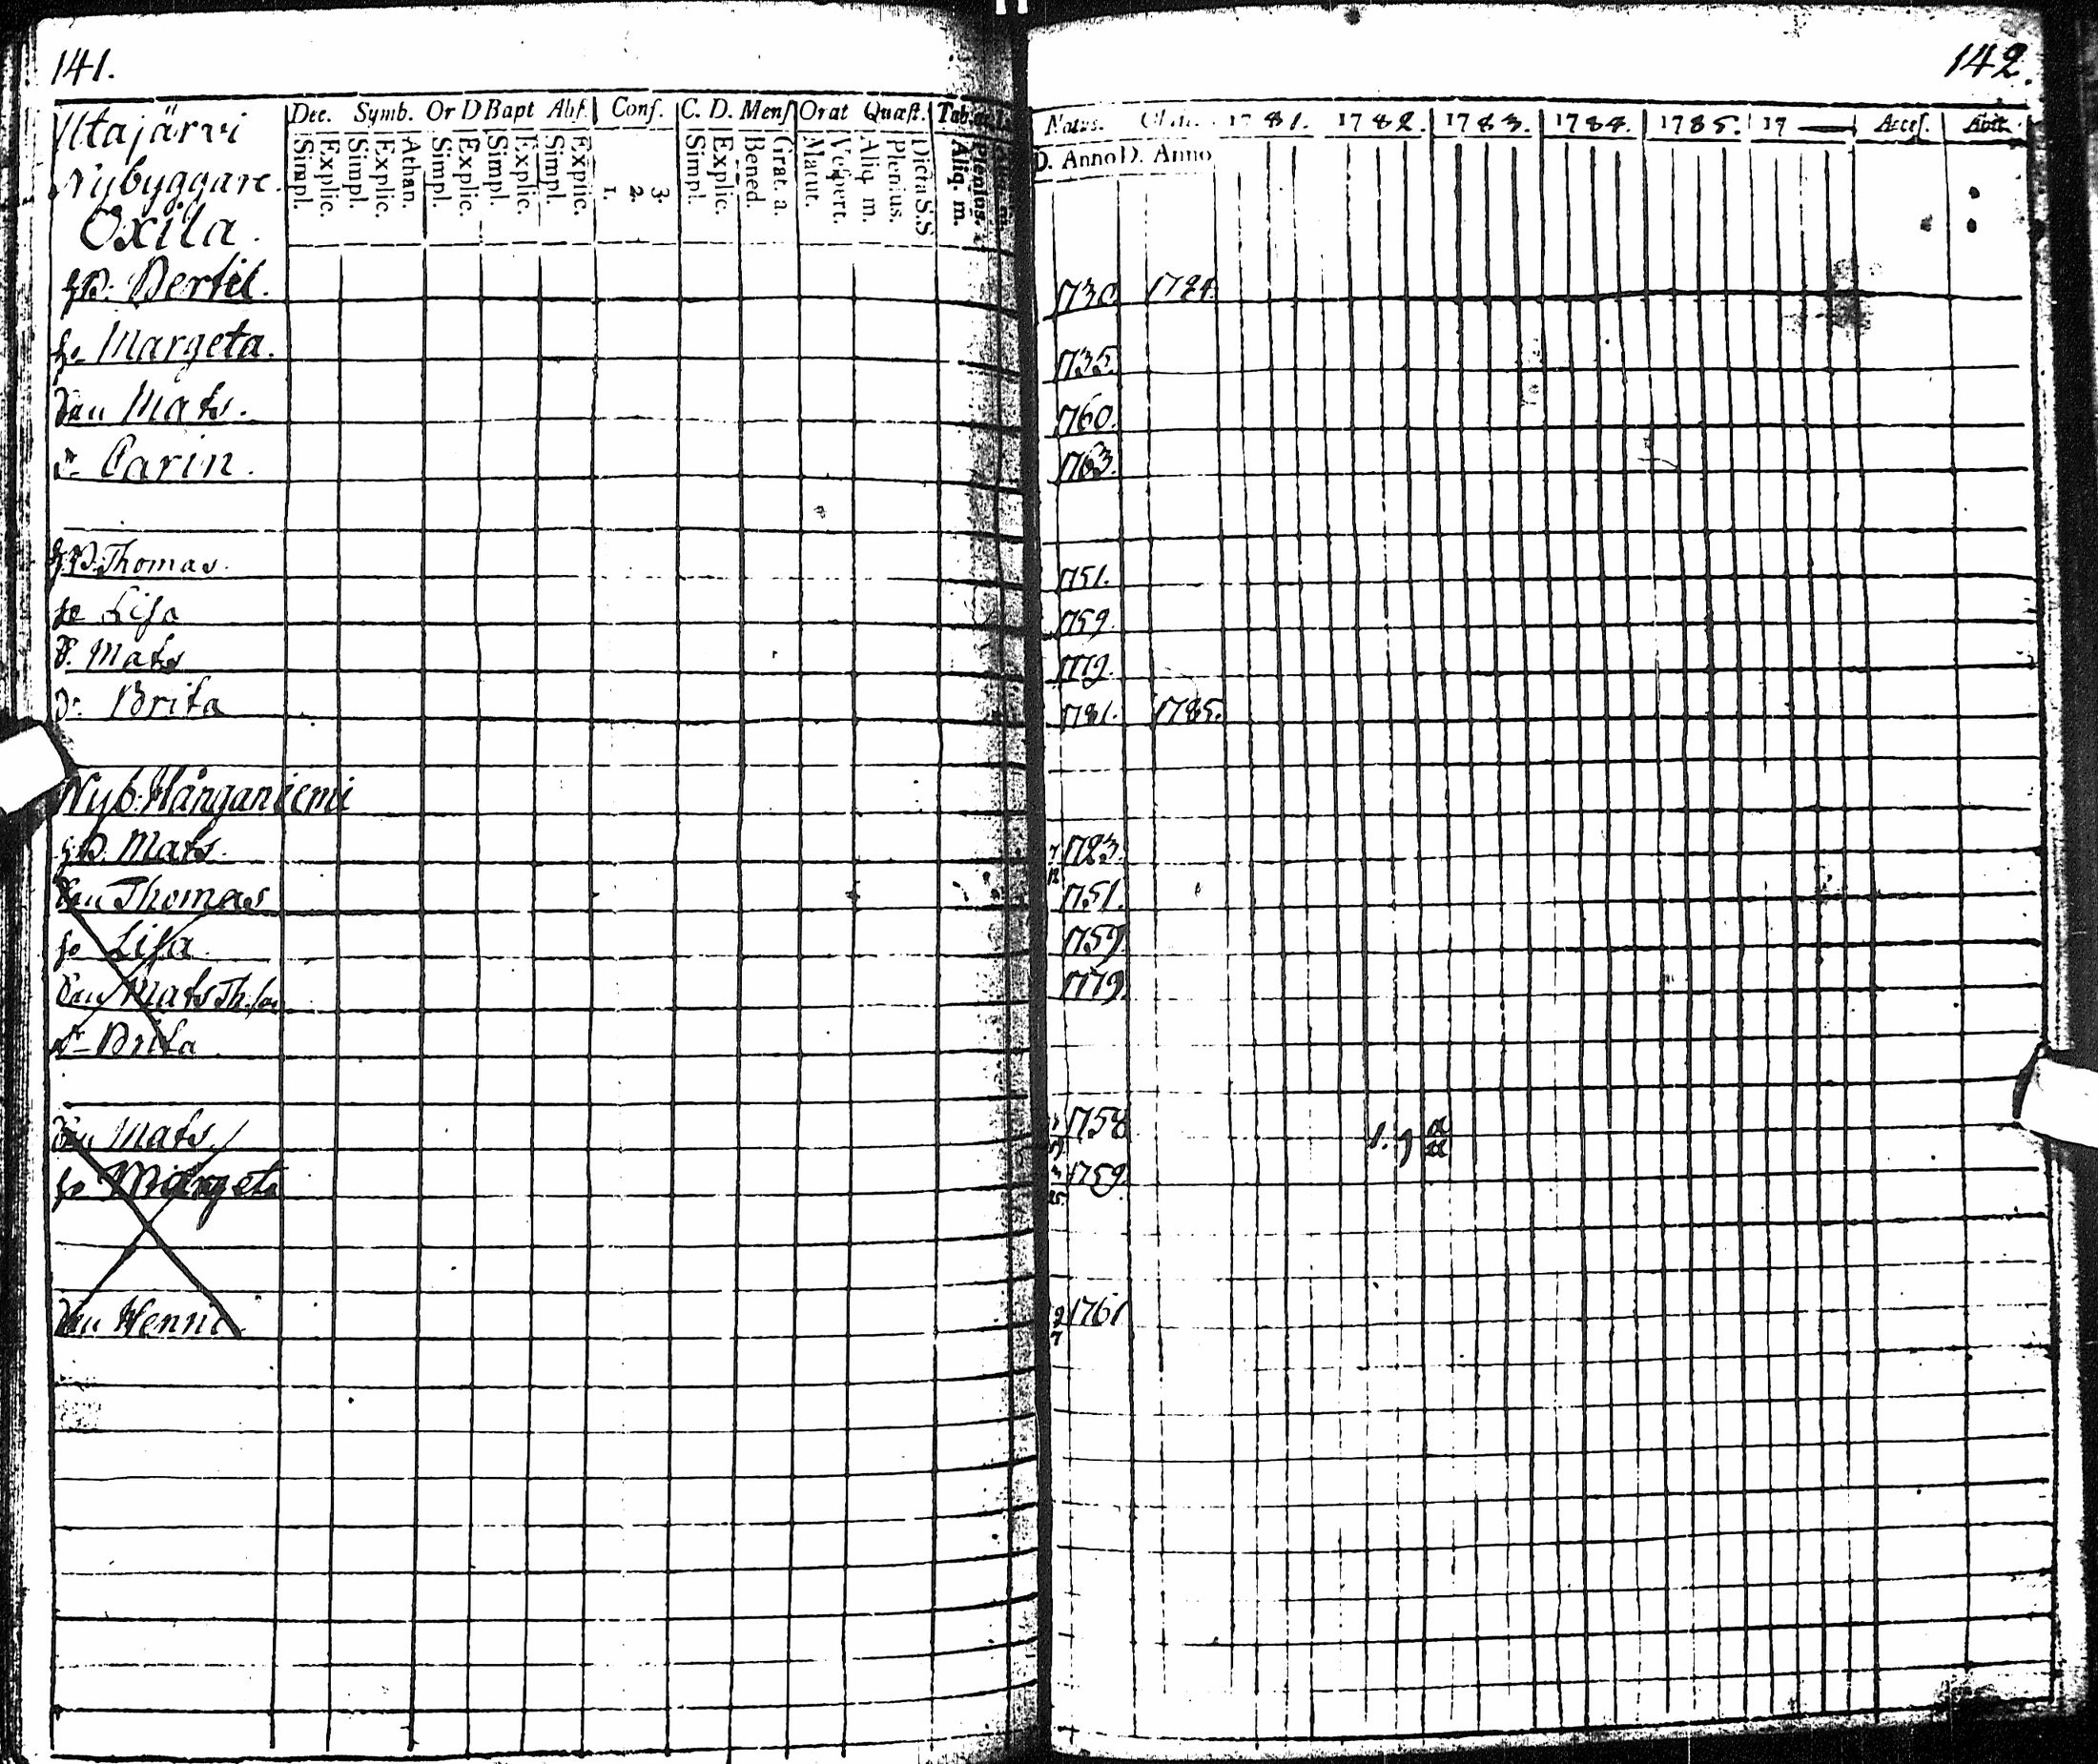 141.
Dec. Symb. Or D Bapt Abs. Conf. C. D. Mens Orat Quæst. Tab.
Simpl. Explic. Simpl. Explic. Athan. Simpl. Explic. Simpl. Explic. Simpl. Explic. 1. 2. 3. Simpl. Explic. Bened. Grat. a. Matut. Vespert. Aliq. m. Plenius. Dicta S.S Aliq. m. Plenius.
Yltajärvi
Nybyggare.
Oxila.
Bertil.
Margeta.
Mats.
Carin.
Thomas.
Lisa
Mats
Dr. Brita
Nyb. Hånganiemi
Mats.
Thomas
Lisa
Mats Th.son
Brita
Mats
Margeta
Henric
142.
Natus. Obiit. 1781. 1782. 1783. 1784. 1785. 17 — Access. Abit.
D. Anno D. Anno
1730 1784.
1735.
1760.
1763.
1751.
1759.
1779.
1781. 1785.
1723.
1751.
1759.
1779.
1758
1759.
1761